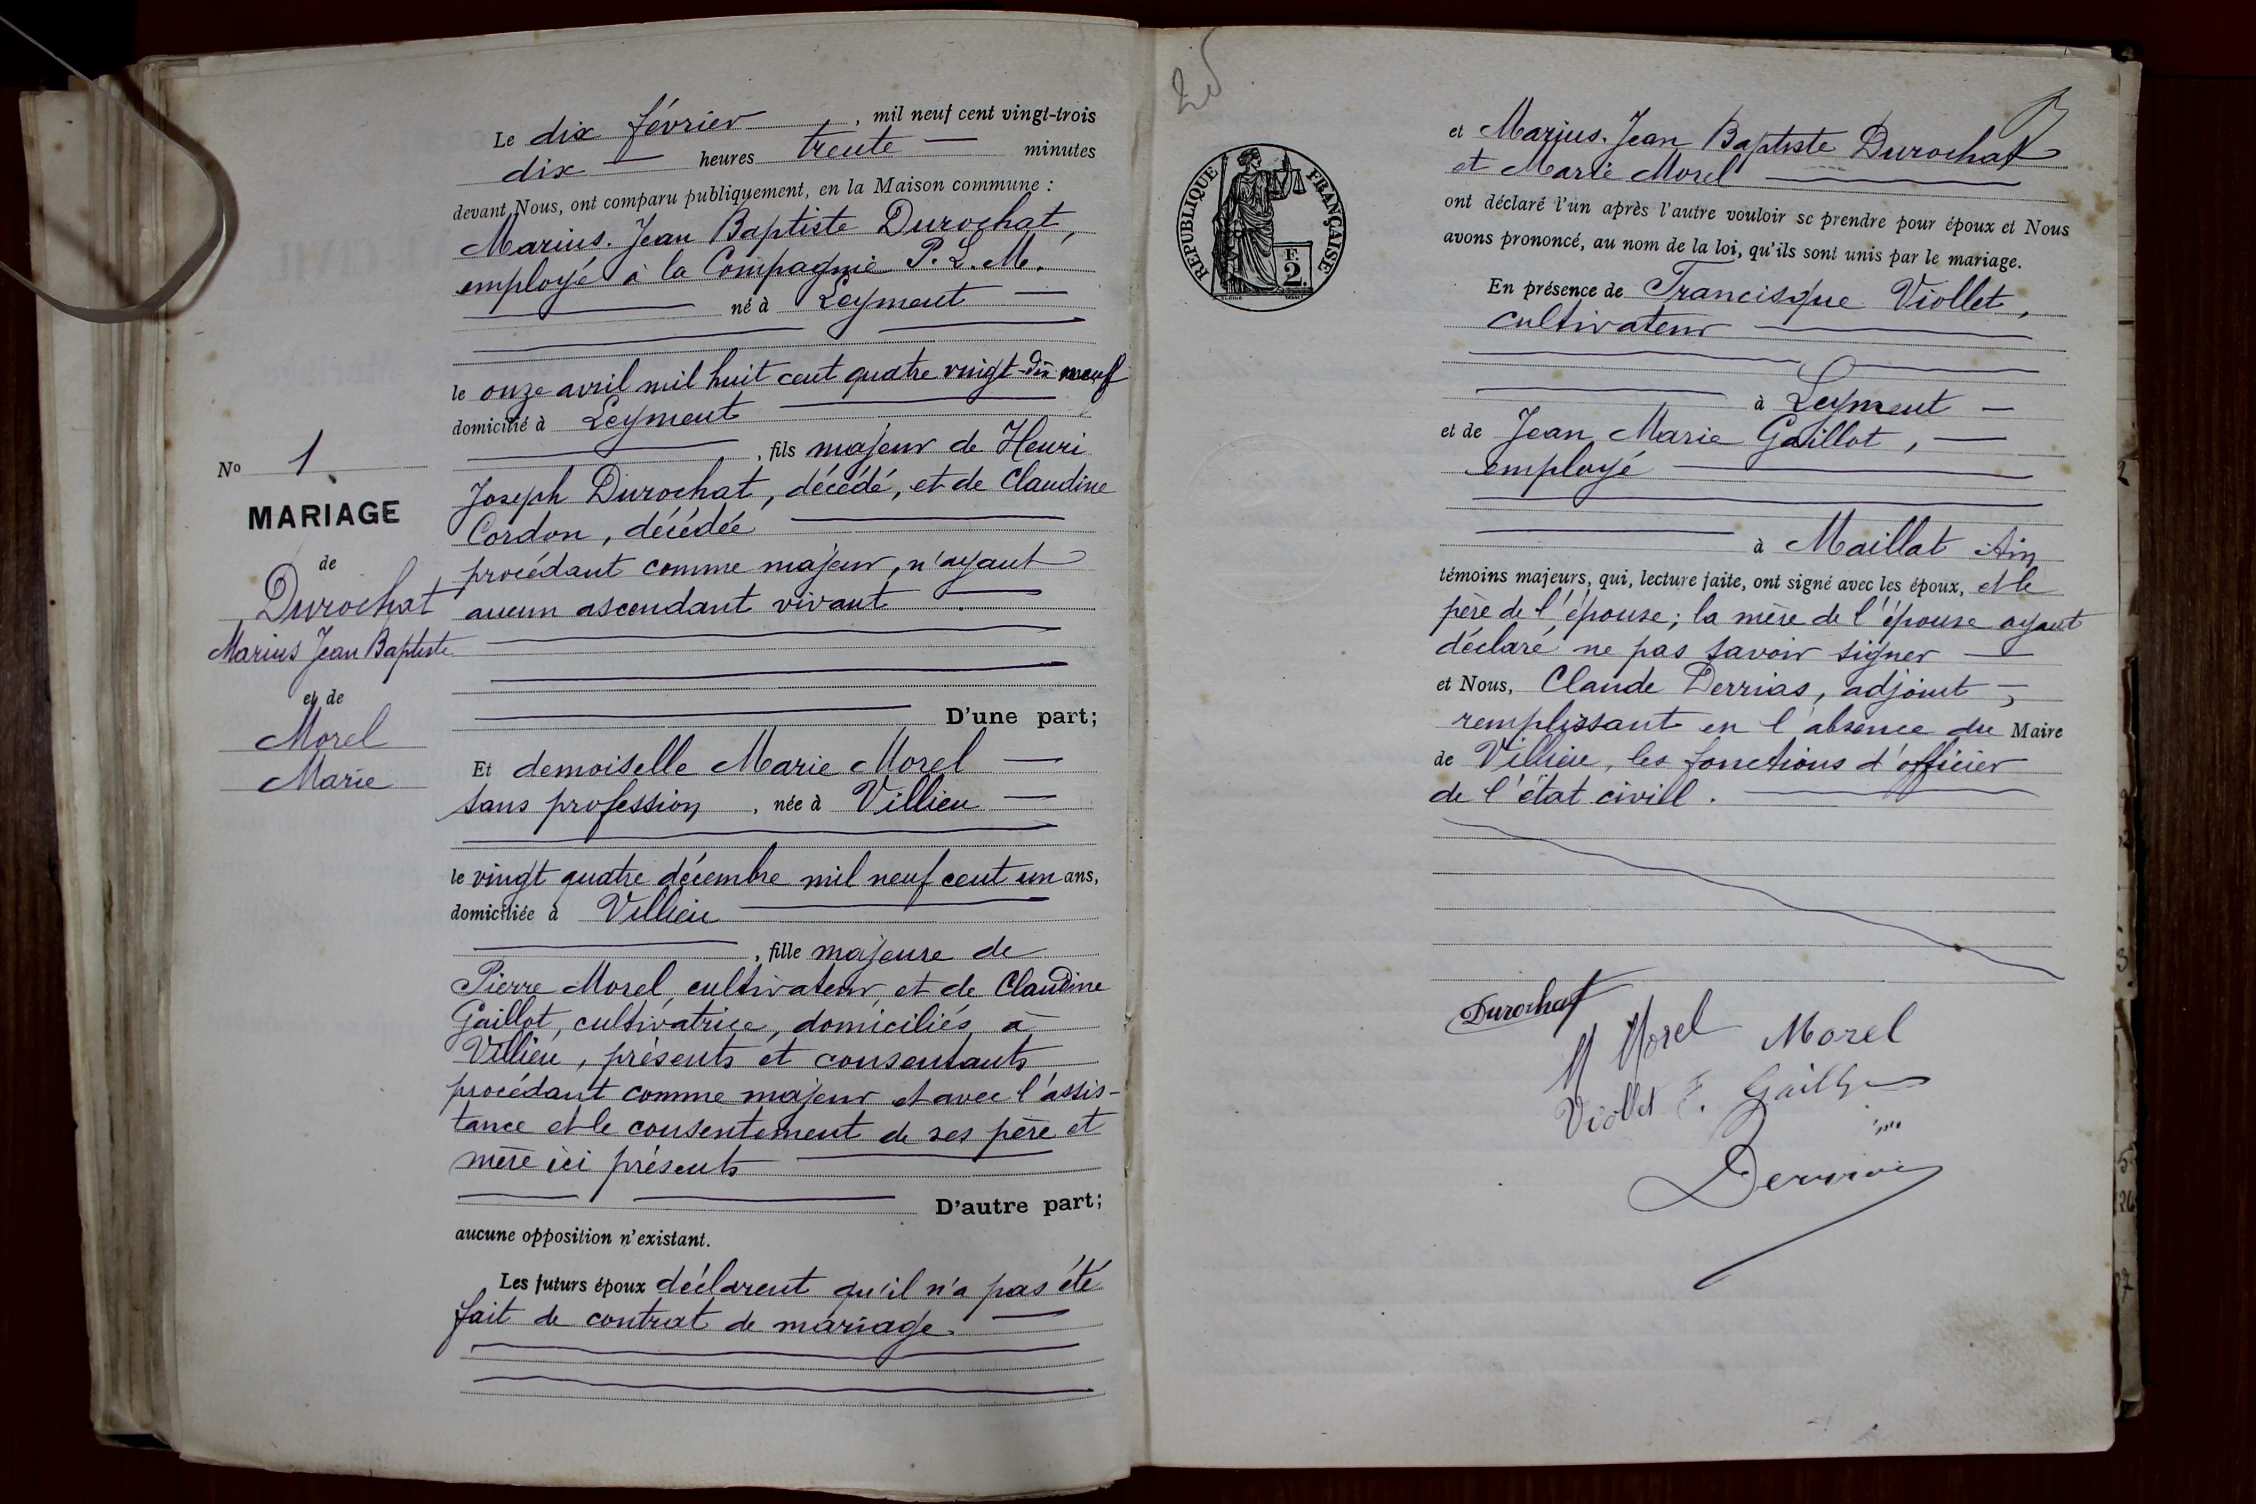 Le dix février, mil neuf cent vingt-trois
dix — heures trente — minutes
devant Nous, ont comparu publiquement, en la Maison commune :
Marius. Jean Baptiste Durochat,
employé à la Compagnie P. L. M.
né à Leyment —
le onze avril mil huit cent quatre vingt-dix neuf
domicilié à Leyment
, fils majeur de Henri
Joseph Durochat, décédé, et de Claudine
Cordon, décédée
procédant comme majeur, n'ayant
aucun ascendant vivant
D'une part;
Et demoiselle Marie Morel —
sans profession, née à Villieu —
le vingt quatre décembre mil neuf cent un ans,
domiciliée à Villieu
, fille majeure de
Pierre Morel, cultivateur, et de Claudine
Gaillot, cultivatrice, domiciliés à
Villieu, présents et consentants
procédant comme majeur et avec l'assis-
tance et le consentement de ses père et
mère ici présents
D'autre part;
aucune opposition n'existant.
Les futurs époux déclarent qu'il n'a pas été
fait de contrat de mariage. —
No 1
MARIAGE
de
Durochat
Marius Jean Baptiste
et de
Morel
Marie
25
RÉPUBLIQUE FRANÇAISE
F.
2.
et Marius. Jean Baptiste Durochat
et Marie Morel
ont déclaré l'un après l'autre vouloir se prendre pour époux et Nous
avons prononcé, au nom de la loi, qu'ils sont unis par le mariage.
En présence de Francisque Viollet,
cultivateur
à Leyment —
et de Jean Marie Gaillot, —
employé
à Maillat Ain
témoins majeurs, qui, lecture faite, ont signé avec les époux, et le
père de l'épouse; la mère de l'épouse ayant
déclaré ne pas savoir signer —
et Nous, Claude Derrias, adjoint —,
remplissant en l'absence du Maire
de Villieu, les fonctions d'officier
de l'état civill.
Durochat
M Morel Morel
Viollet F. Gaillot
Derrias